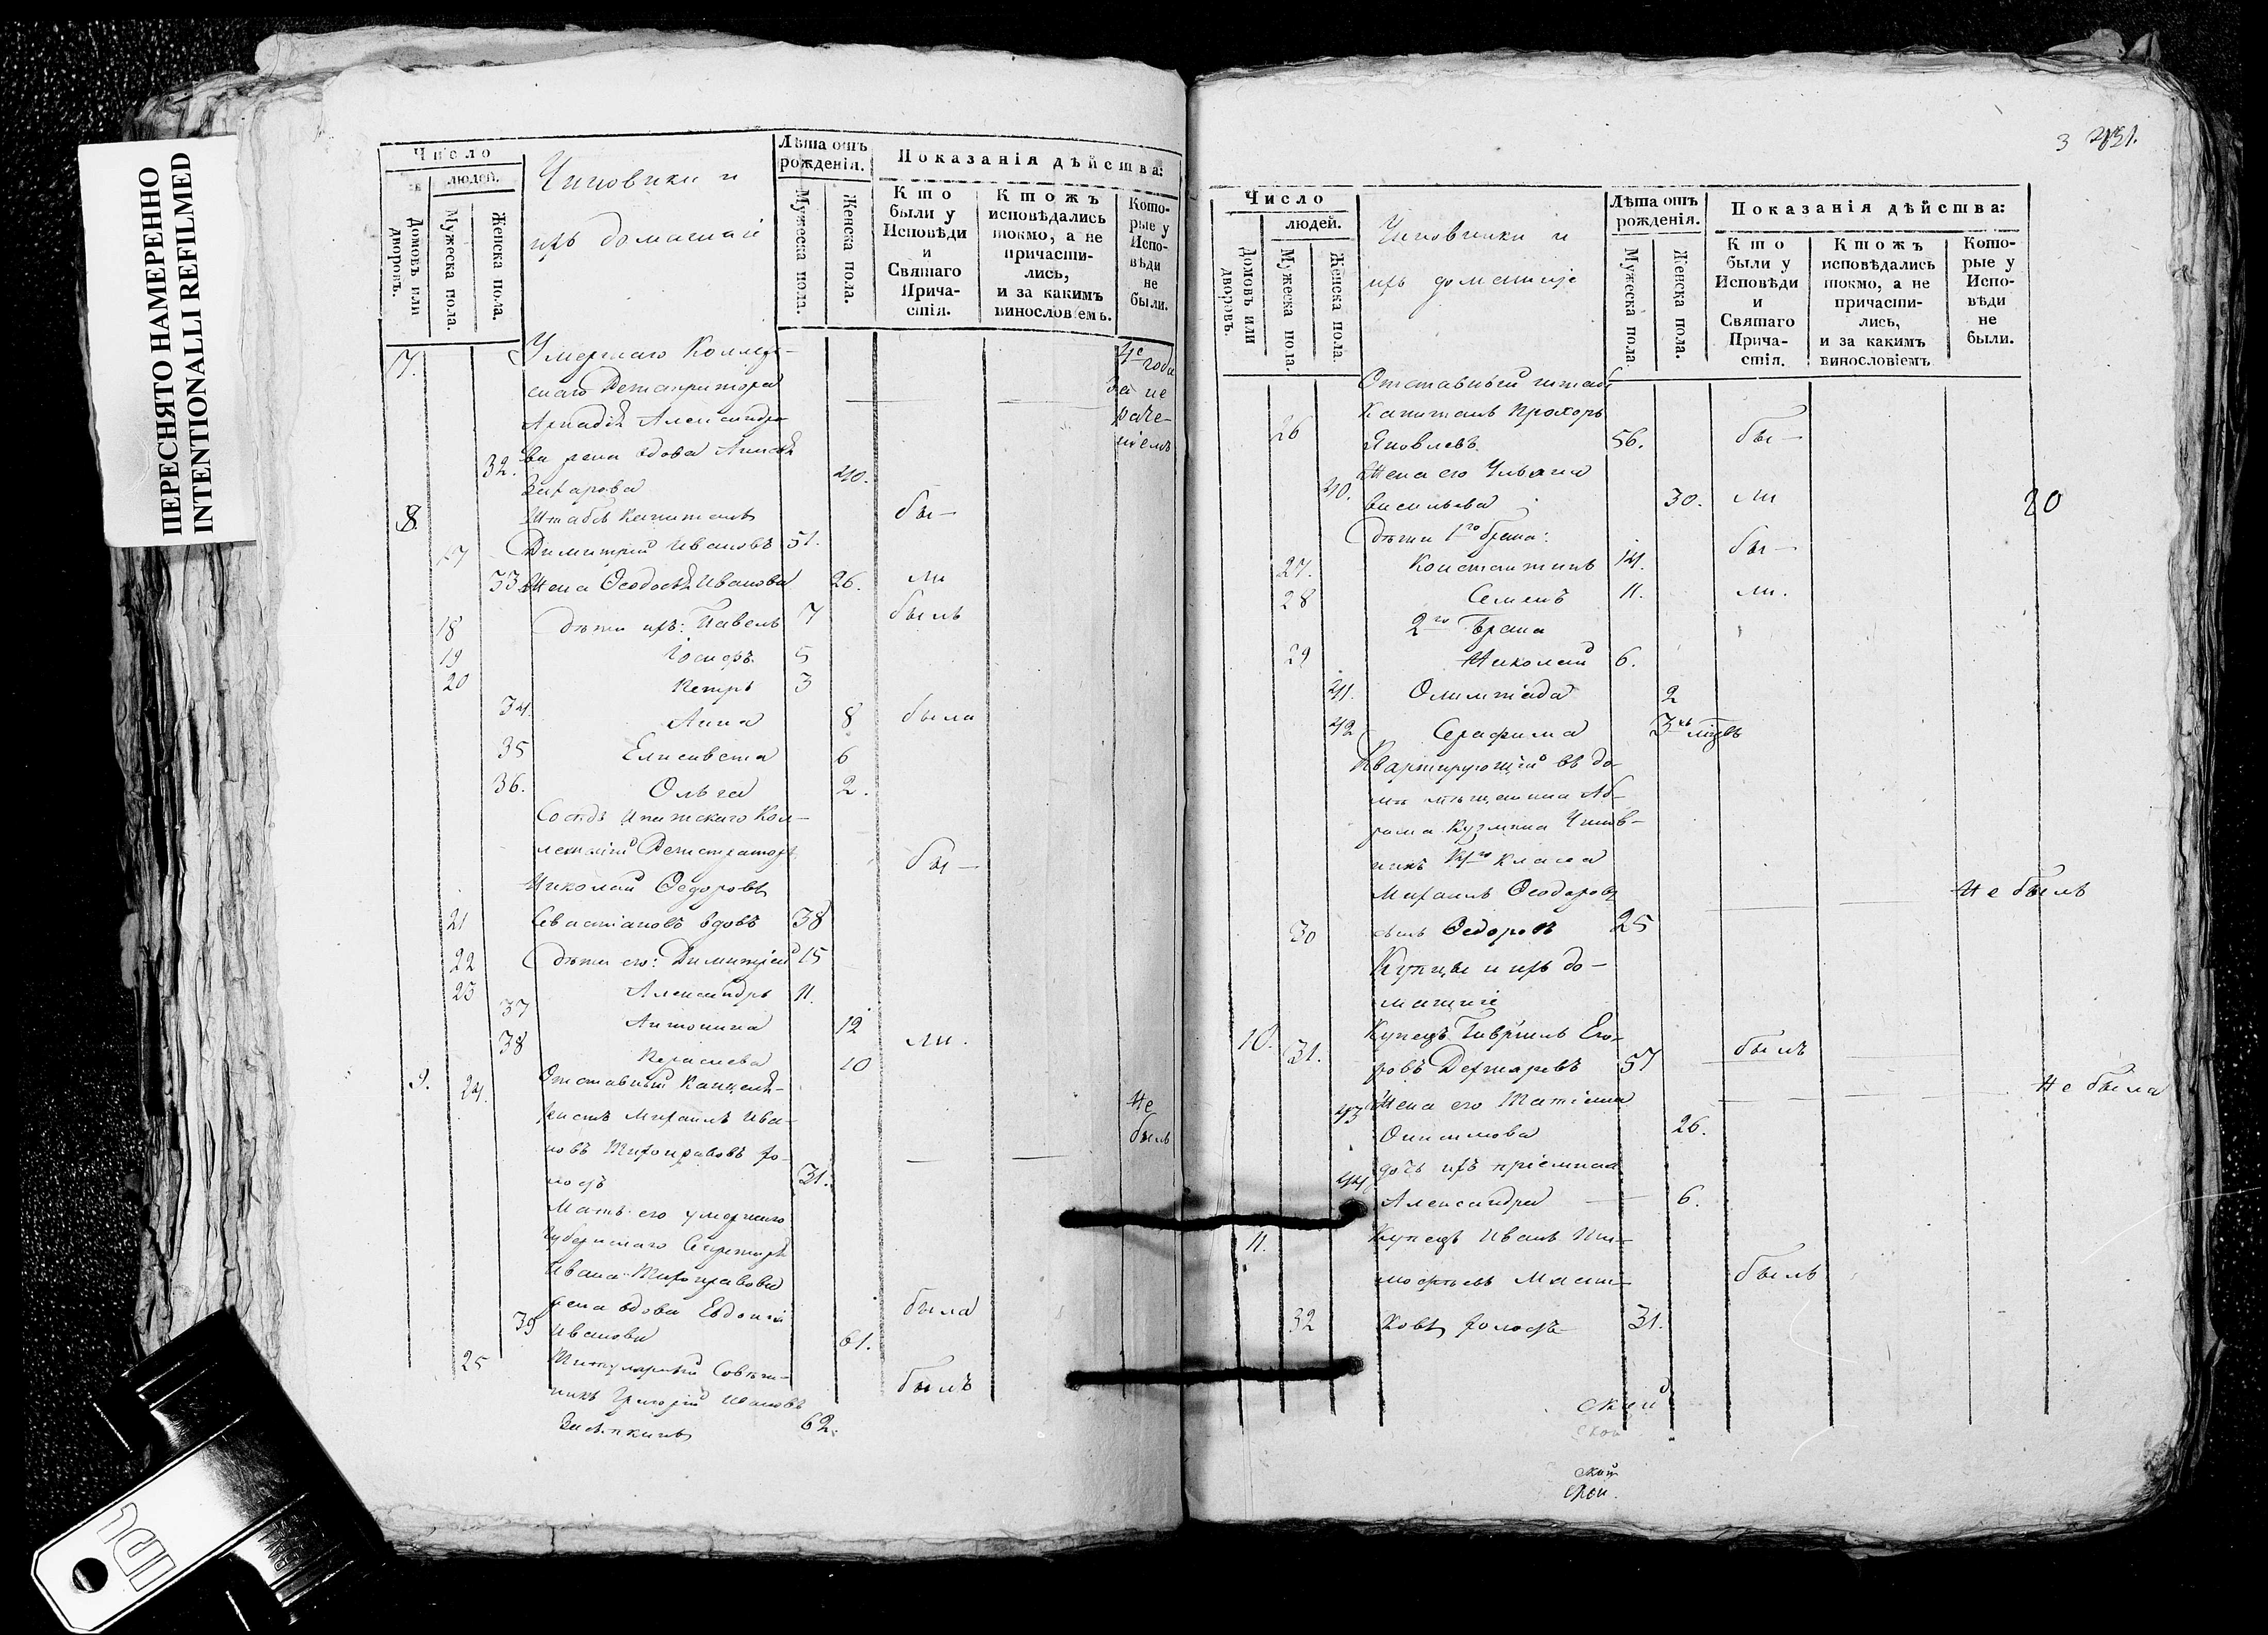 ПЕРЕСНЯТО НАМЕРЕННО
INTENTIONALLI REFILMED
Число
людей.
Домовъ или дворовъ.
Мужеска пола.
Женска пола.
Чиновники и
ихъ домашніе
Лѣта отъ рожденія.
Мужеска пола.
Женска пола.
Показанія дѣйства:
Кто были у Исповѣди и Святаго Причастія.
Ктожъ исповѣдались токмо, а не причастились, и за какимъ винословіемъ.
Которые у Исповѣди не были.
7. Умершаго Коллеж-
скаго Регистратора
Аркадія Александро-
32. ва жена вдова 40.
Захарова
4е года не раченіемъ
8. Штабсъ Капитанъ бы-
17 Димитрій Ивановъ 51.
33 Жена Ѳеодосія Иванова 26. ли
18 Дѣти ихъ: Павелъ 7 былъ
19 Іосифъ 5
20 Петръ 3
34. Анна 8 была
35 Елисавета 6
36. Ольга 2.
Кол-
лежскій Регистраторъ бы-
Николай Ѳедоровъ
21 Севастіановъ вдовъ 38
22 Дѣти его: Димитрій 15
23 Александръ 11.
37 Антонина 12
38 10 ли.
9. 24. Отставный Канцеля-
ристъ Михаилъ Ива-
новъ Тихонравовъ хо-
лостъ 31. Не былъ
Мать его умершаго
Губернскаго Секретаря
Ивана Тихонравова
жена вдова Евдокія была
39 Иванова 61.
25 Титулярный Совѣт-
никъ Григорій Ивановъ былъ
62.
3 231.
Число
людей.
Домовъ или дворовъ.
Мужеска пола.
Женска пола.
Чиновники и
ихъ домашніе
Лѣта отъ рожденія.
Мужеска пола.
Женска пола.
Показанія дѣйства:
Кто были у Исповѣди и Святаго Причастія.
Ктожъ исповѣдались токмо, а не причастились, и за какимъ винословіемъ
Которые у Исповѣди не были.
Отставный штабъ
Капитанъ Прохоръ
26 Яковлевъ 56. бы-
Жена его Ульяна
40. Васильева 30. ли
20
Дѣти 1го брака:
27. Константинъ 14. бы-
28 Семенъ 11. ли.
2го брака
29 Николай 6.
41. Олимпіада 2
42 Серафима 3хъ мѣсяцевъ
Квартирующій въ до-
мѣ мѣщанина Аб-
рама Кузмина Чинов-
никъ 14го класса
Михаилъ Ѳеодоровъ Не былъ
30 сынъ Ѳедоровъ 25
Купцы и ихъ до-
машніе
10. Купецъ Гавріилъ Его-
31. ровъ Дегтяревъ 57 былъ
Жена его Татіана Не была
43 Онисимова 26.
дочь ихъ пріемная
44 Александра 6.
11. Купецъ Иванъ Ти-
мофѣевъ Масли- былъ
32 ковъ холостъ 31.
ской
ской
ской